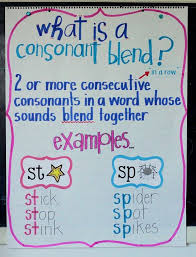 what is a
consonant blend?
in a row
2 or more consecutive
consonants in a word whose
sounds blend together
examples...
st sp
stick spider
stop spot
stink spikes